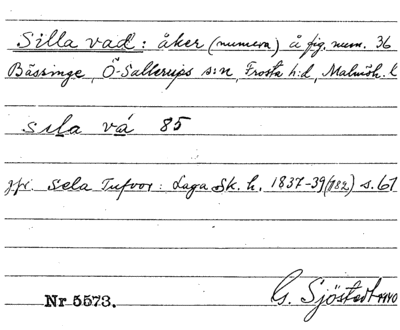 Silla vad: åker (numera) å fig. num. 36
Bässinge, Ö-Sallerups s:n, Frosta h:d, Malmöh. l
sila vá 85
jfr. sela Tufvor: Laga Sk. h. 1837-39 (182) s. 67
Nr 5573.
G. Sjöstedt 1940